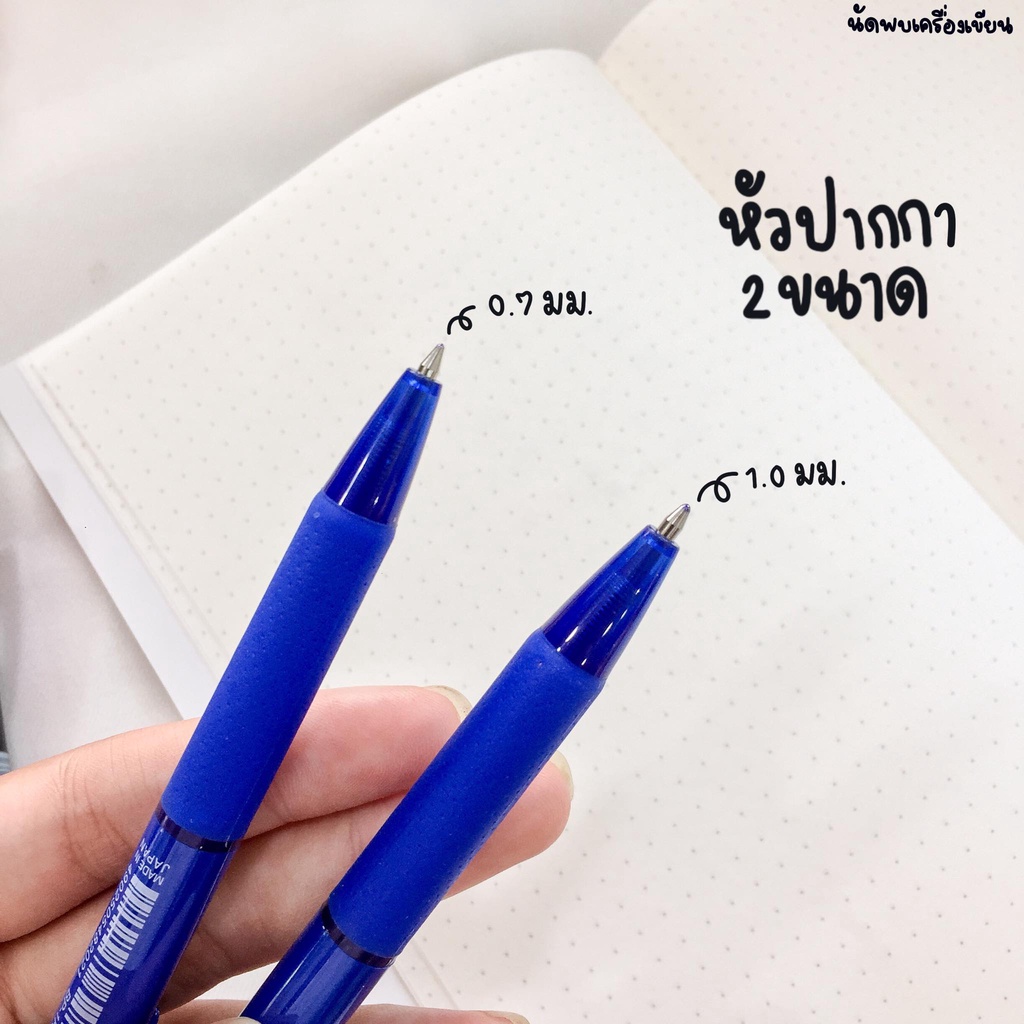 นัดพบเครื่องเขียน
หัวปากกา
2 ขนาด
0.7 มม.
1.0 มม.
MADE IN
JAPAN